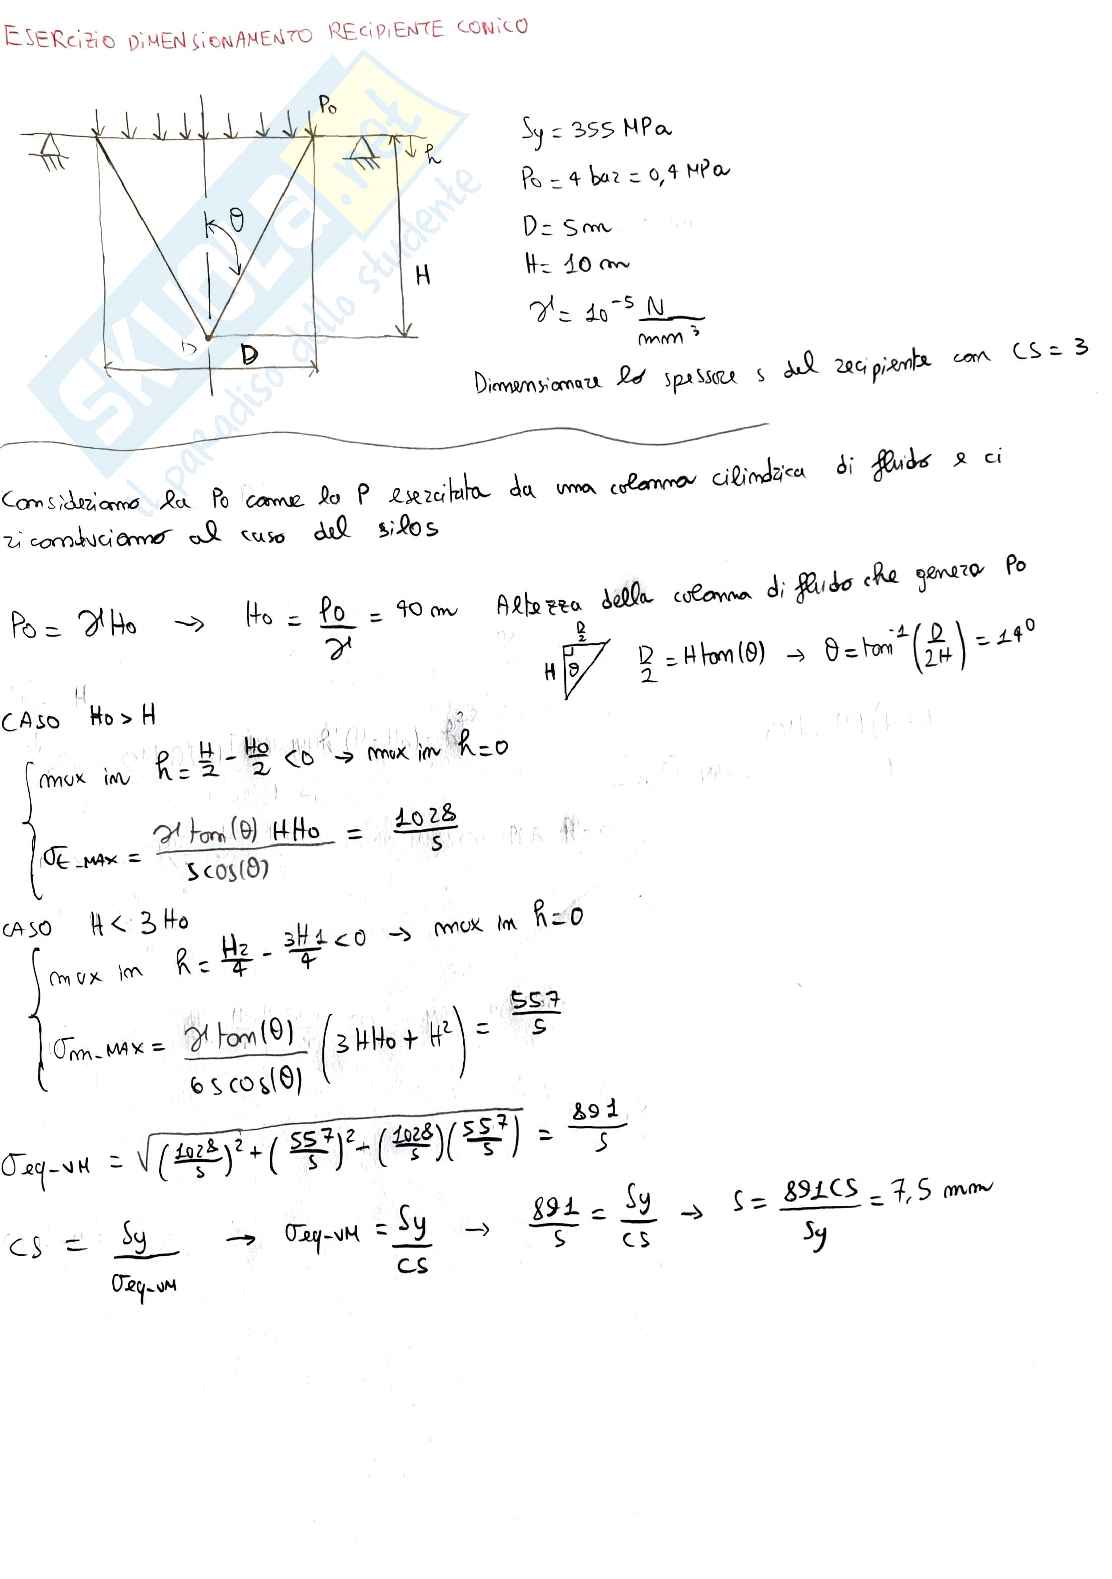 ESERCIZIO DIMENSIONAMENTO RECIPIENTE CONICO
P0
h
θ
H
D
Sy = 355 MPa
P0 = 4 bar = 0,4 MPa
D = 5m
H = 10 m
γ = 10^-5 N/mm^3
Dimensionare lo spessore s del recipiente con CS = 3
Consideriamo la P0 come la P esercitata da una colonna cilindrica di fluido e ci
riconduciamo al caso del silos
P0 = γH0 → H0 = P0/γ = 40 m Altezza della colonna di fluido che genera P0
D/2 H θ D/2 = H tan(θ) → θ = tan^-1(D/2H) = 14°
CASO H0 > H
max in h = H/2 - H0/2 < 0 → max in h = 0
σt_MAX = γ tan(θ) H H0 / s cos(θ) = 1028/s
CASO H < 3 H0
max in h = H2/4 - 3H1/4 < 0 → max in h = 0
σm_MAX = γ tan(θ) / 6 s cos(θ) (3 H H0 + H^2) = 557/s
σeq-VM = √((1028/s)^2 + (557/s)^2 - (1028/s)(557/s)) = 891/s
CS = Sy/σeq-VM → σeq-VM = Sy/CS → 891/s = Sy/CS → s = 891CS/Sy = 7,5 mm
SKUOLA.net
il paradiso dello studente